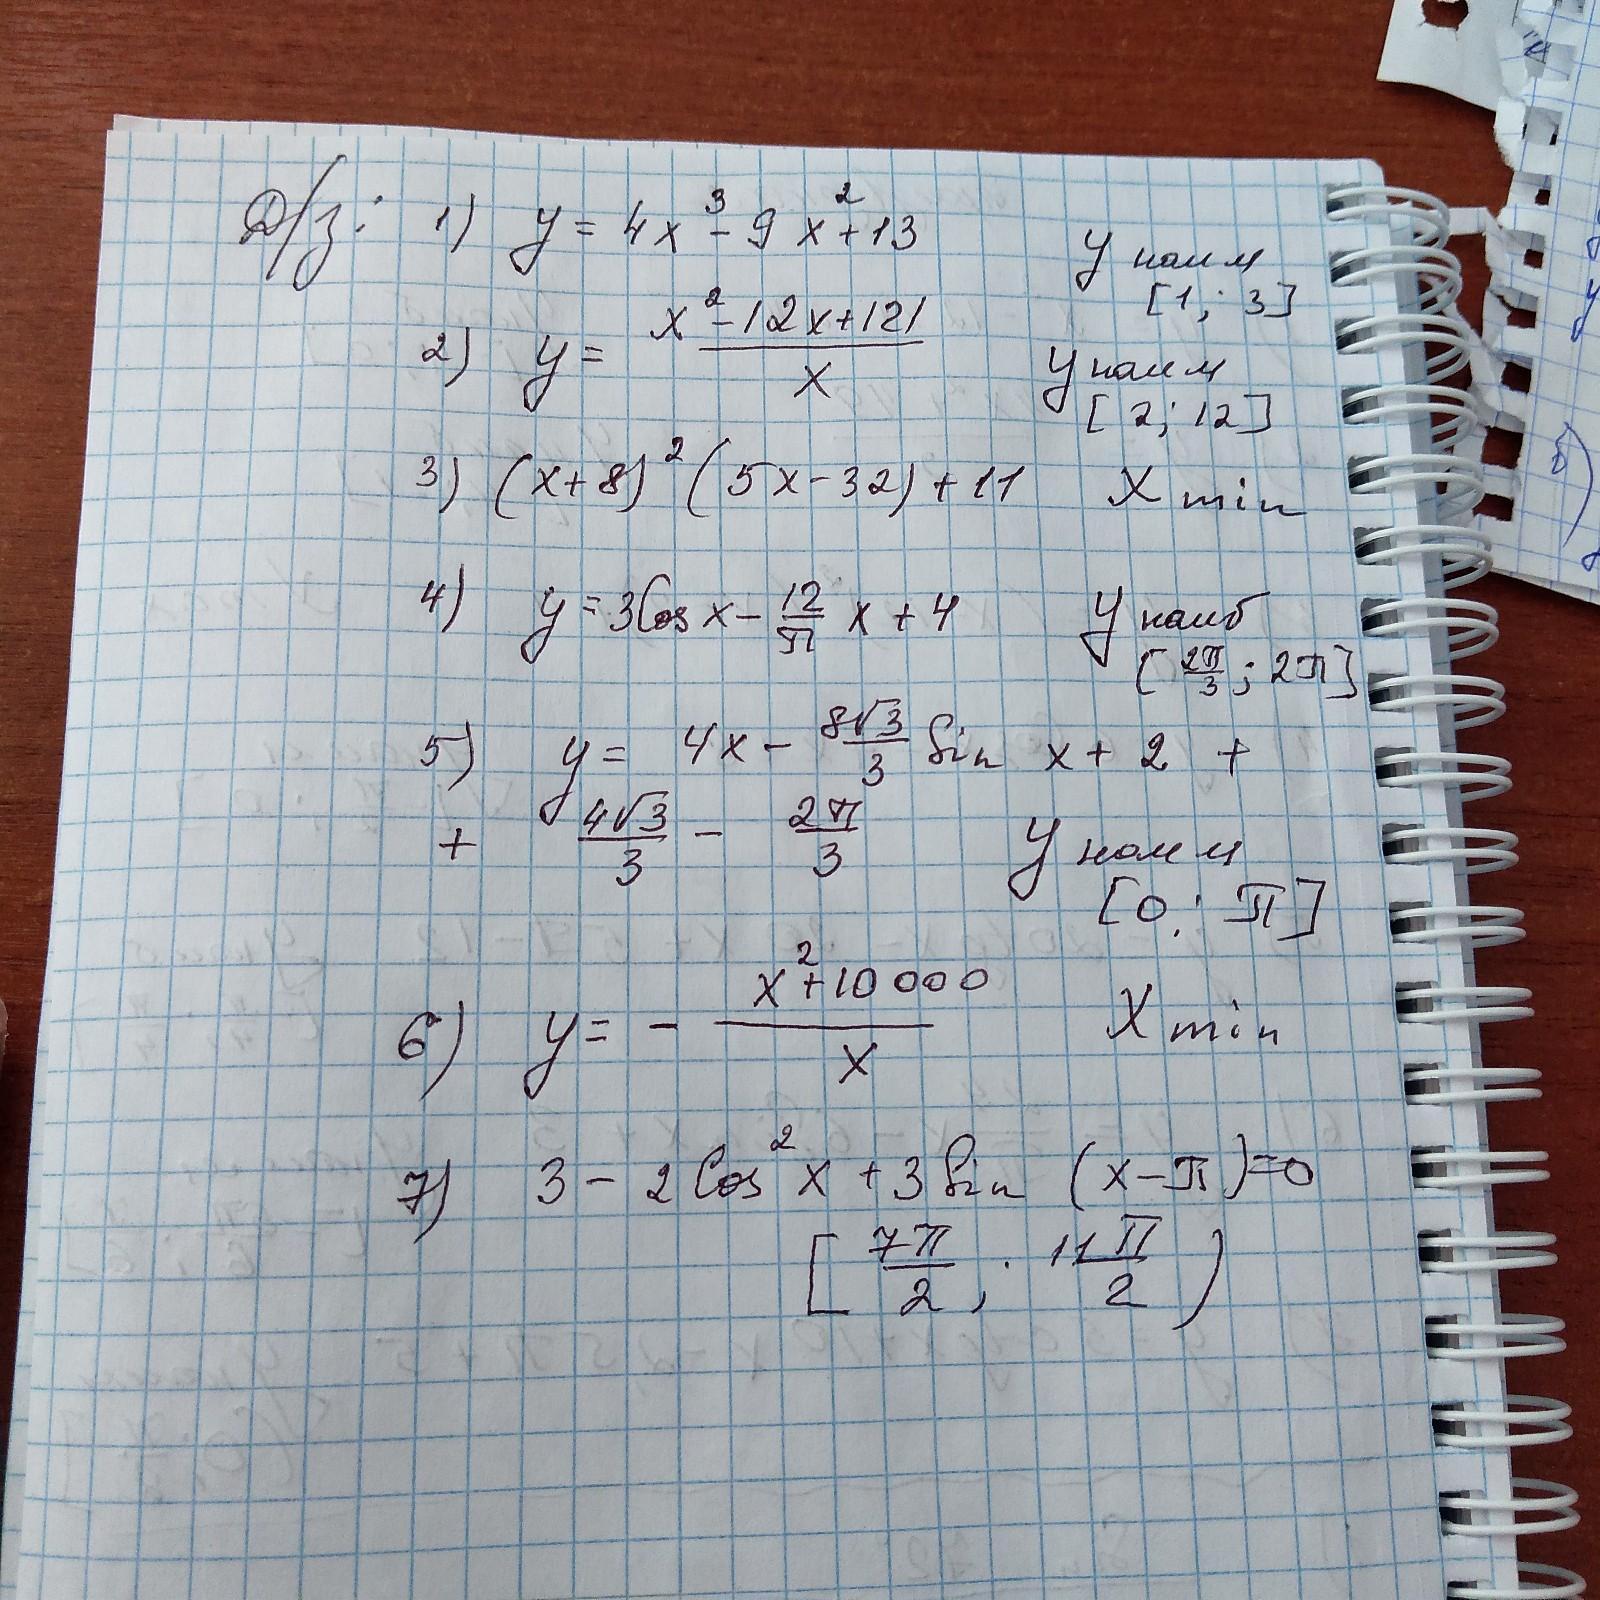 Д/з: 1) y = 4x³ - 9x² + 13 y наим [1; 3]
2) y = (x² - 12x + 121)/x y наим [2; 12]
3) (x+8)² (5x - 32) + 11 x min
4) y = 3Cos x - 12/π x + 4 y наиб [2π/3; 2π]
5) y = 4x - 8√3/3 Sin x + 2 +
+ 4√3/3 - 2π/3 y наим [0; π]
6) y = - (x² + 10000)/x x min
7) 3 - 2Cos² x + 3 Sin (x - π) = 0
[7π/2; 11π/2)